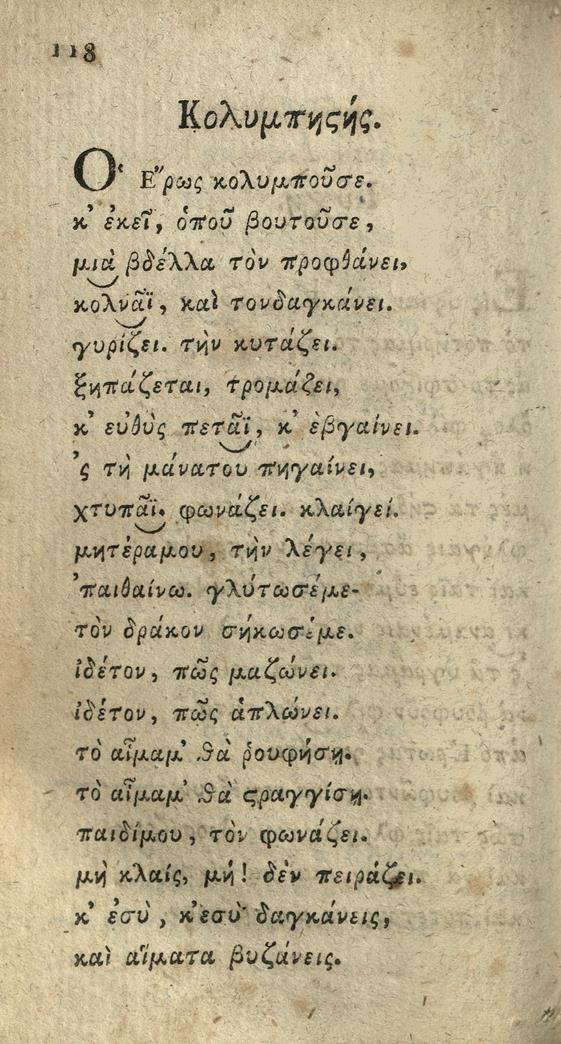 118
Κολυμπηςής.
Ὁ Ἔρως κολυμποῦσε.
κ' ἐκεῖ, ὁποῦ βουτοῦσε,
μιὰ βδέλλα τὸν προφθάνει,
κολνᾶϊ, καὶ τονδαγκάνει.
γυρίζει. τὴν κυτάζει.
ξηπάζεται, τρομάζει,
κ' εὐθὺς πετᾶϊ, κ' ἐβγαίνει.
'ς τὴ μάνατου πηγαίνει,
χτυπᾶϊ. φωνάζει. κλαίγει.
μητέραμου, τὴν λέγει,
'παιθαίνω. γλύτωσέμε-
τὸν δράκον σήκωσέμε.
ἰδέτον, πῶς μαζώνει.
ἰδέτον, πῶς ἁπλώνει.
τὸ αἷμαμ' θὰ ῥουφήσῃ.
τὸ αἷμαμ' θὰ ςραγγίσῃ.
παιδίμου, τὸν φωνάζει.
μὴ κλαίς, μή! δὲν πειράζει.
κ' ἐσὺ, κ'εσὺ δαγκάνεις,
καὶ αἵματα βυζάνεις.